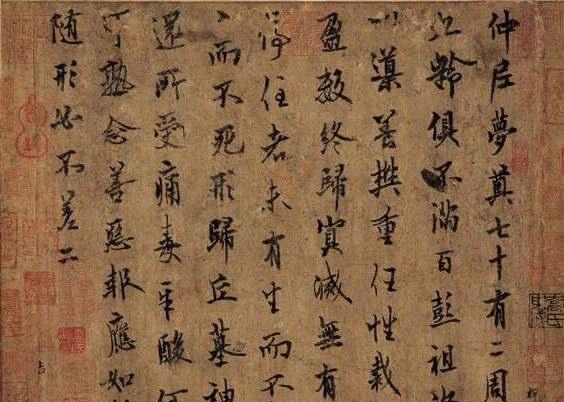 仲尼夢奠七十有二周
齡俱不滿百彭祖
導養樊重任性裁
盈數終歸冥滅無有
停住者未有生而不
而不死形歸丘墓神
還所受痛毒辛酸何
可熟念善惡報應如
随形必不差二